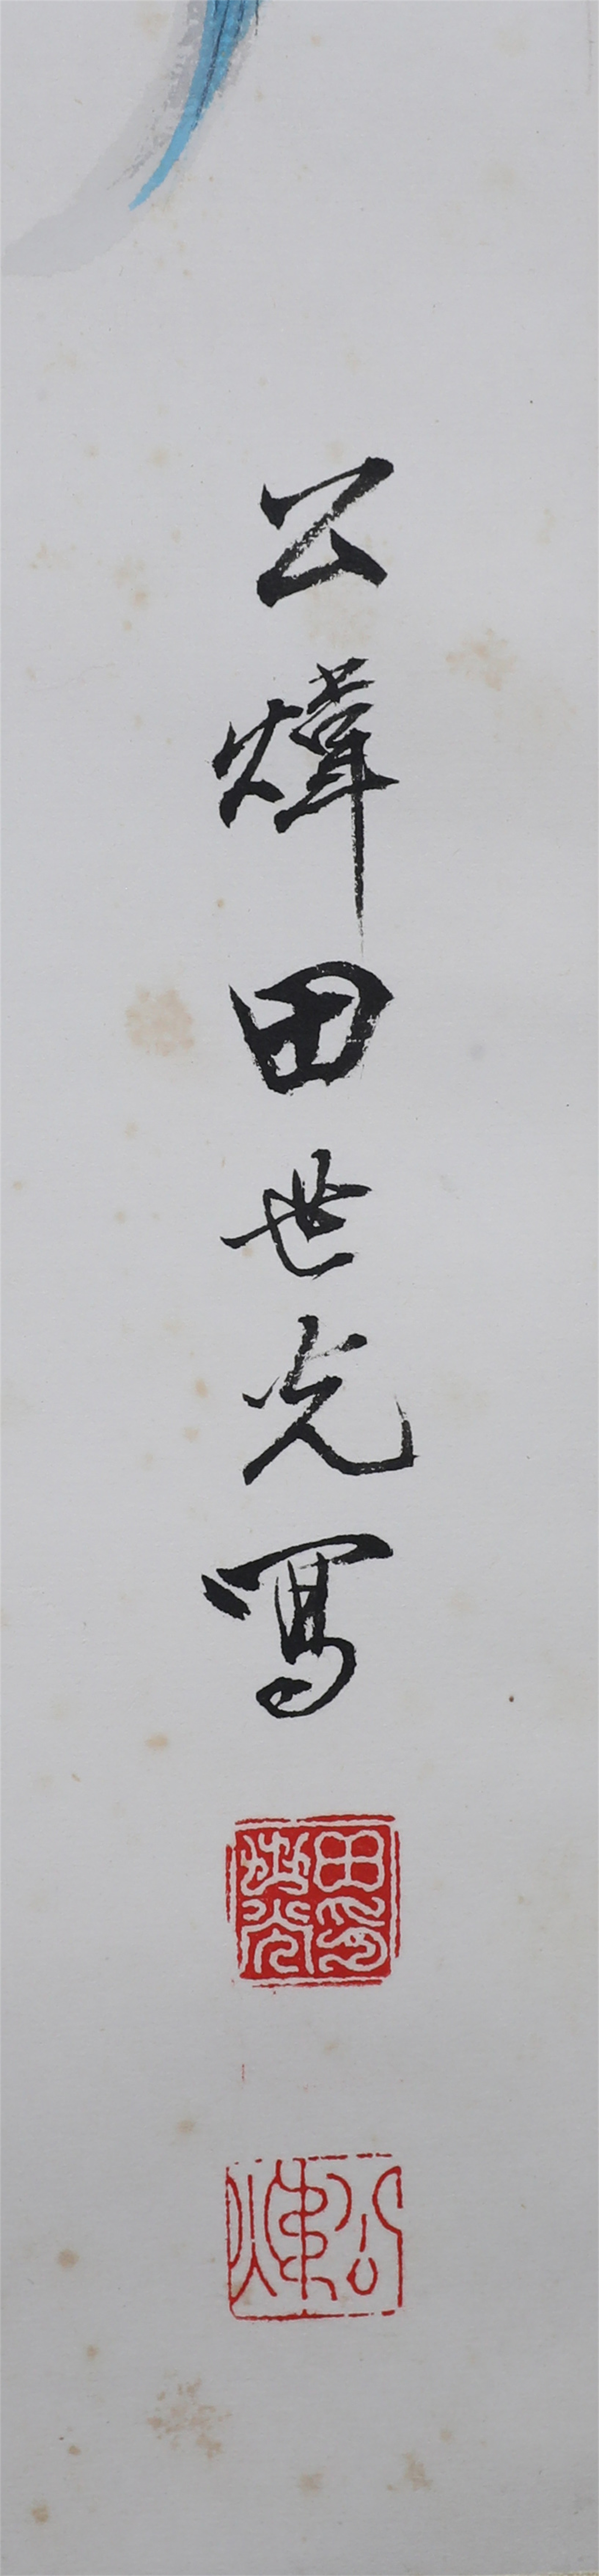 公煒田世光寫
田世光印
公煒